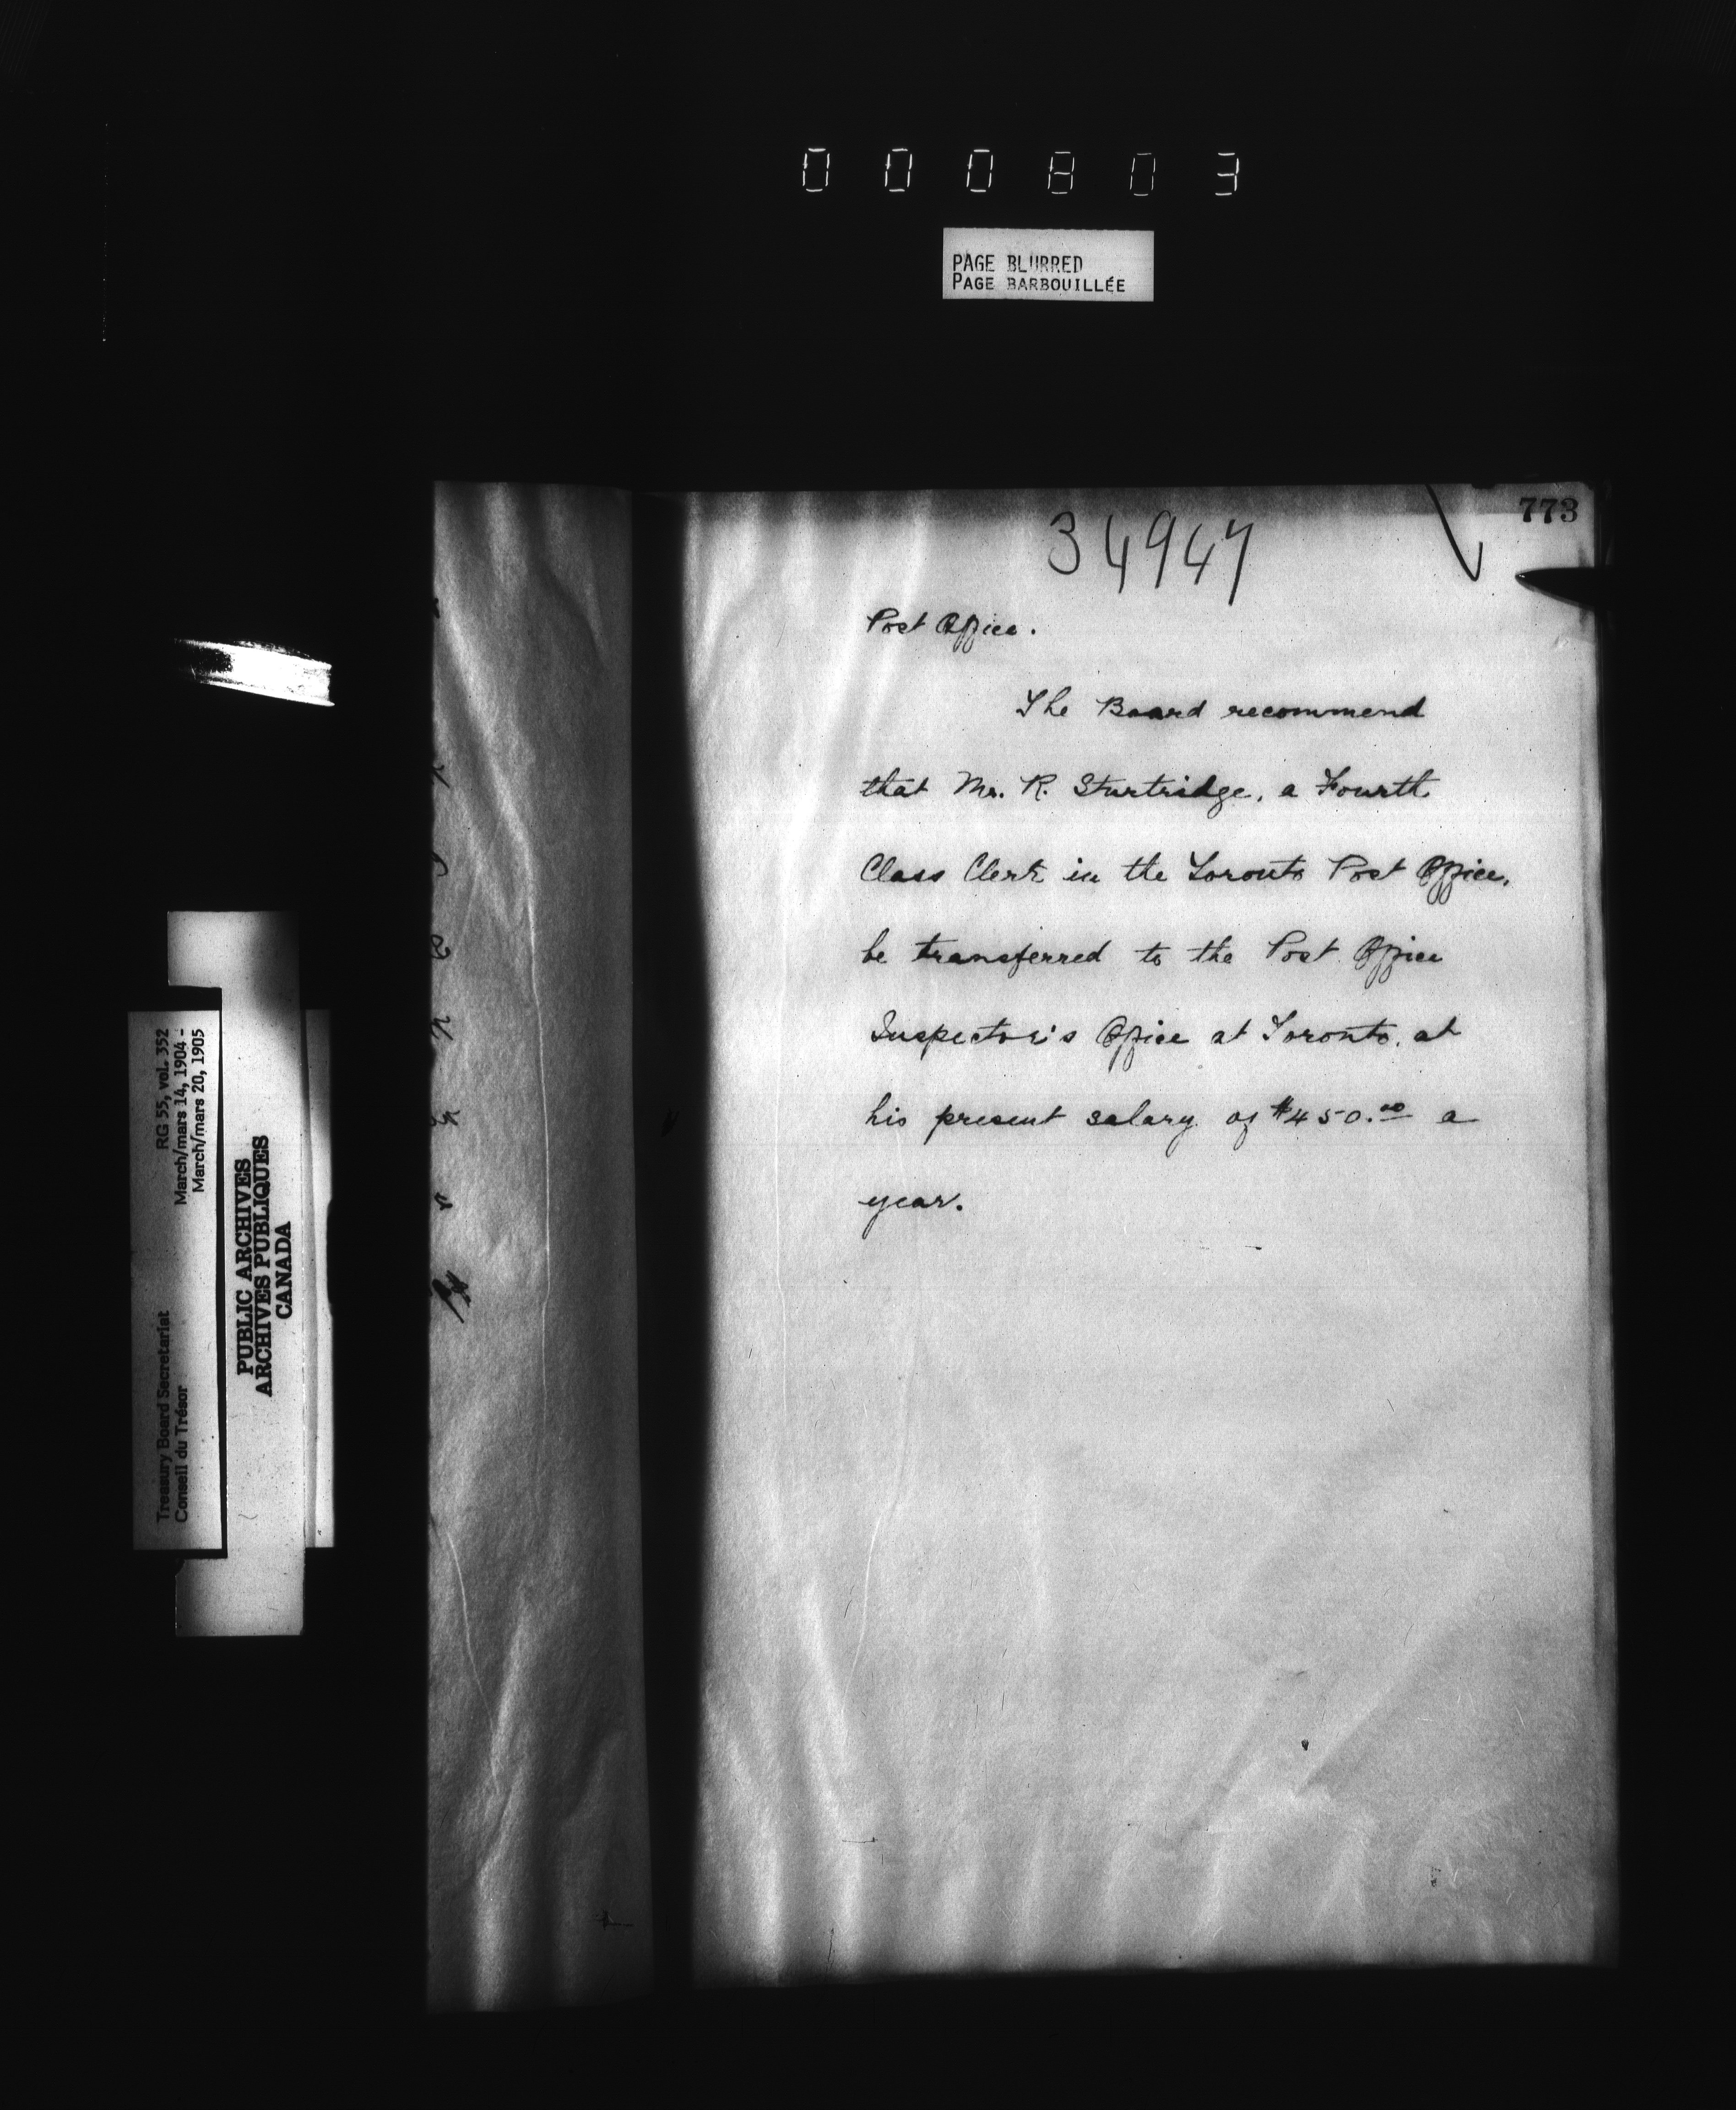 000803
PAGE BLURRED
PAGE BARBOUILLÉE
773
34947
Post Office.
The Board recommend
that Mr. R. Sturtridge, a Fourth
Class Clerk in the Toronto Post Office,
be transferred to the Post Office
Inspector's Office at Toronto, at
his present salary of $450.00 a
year.
RG 55, vol. 352
March/mars 14, 1904 -
March/mars 20, 1905
Treasury Board Secretariat
Conseil du Trésor
PUBLIC ARCHIVES
ARCHIVES PUBLIQUES
CANADA